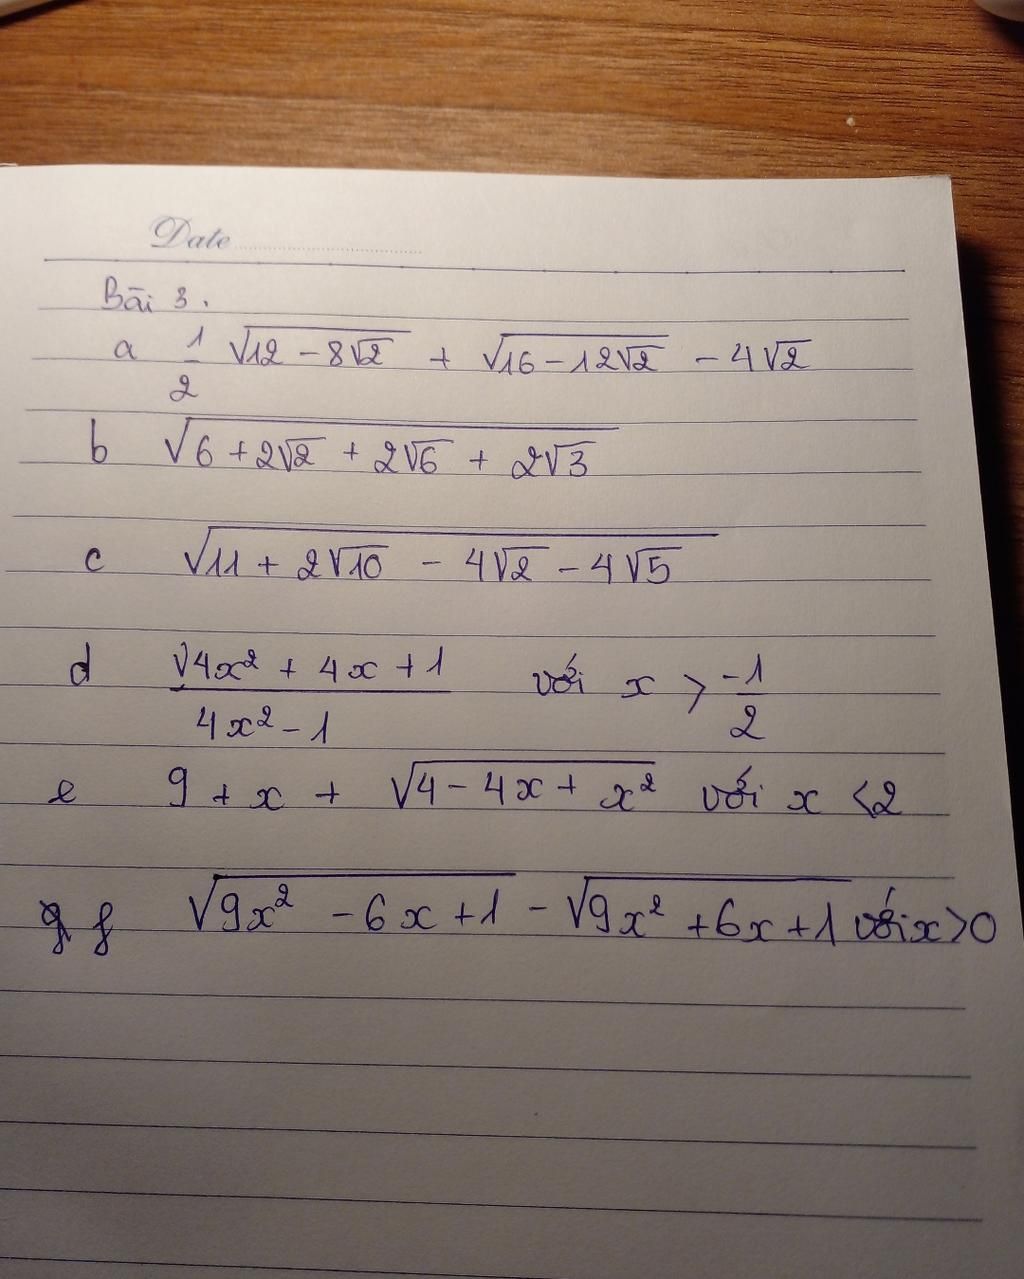 Date
Bài 3.
a 1/2 √(12 - 8√2) + √(16 - 12√2) - 4√2
b √(6 + 2√2 + 2√6 + 2√3)
c √(11 + 2√10 - 4√2 - 4√5)
d √(4x² + 4x + 1) / (4x² - 1) với x > -1/2
e 9 + x + √(4 - 4x + x²) với x < 2
f √(9x² - 6x + 1) - √(9x² + 6x + 1) với x > 0